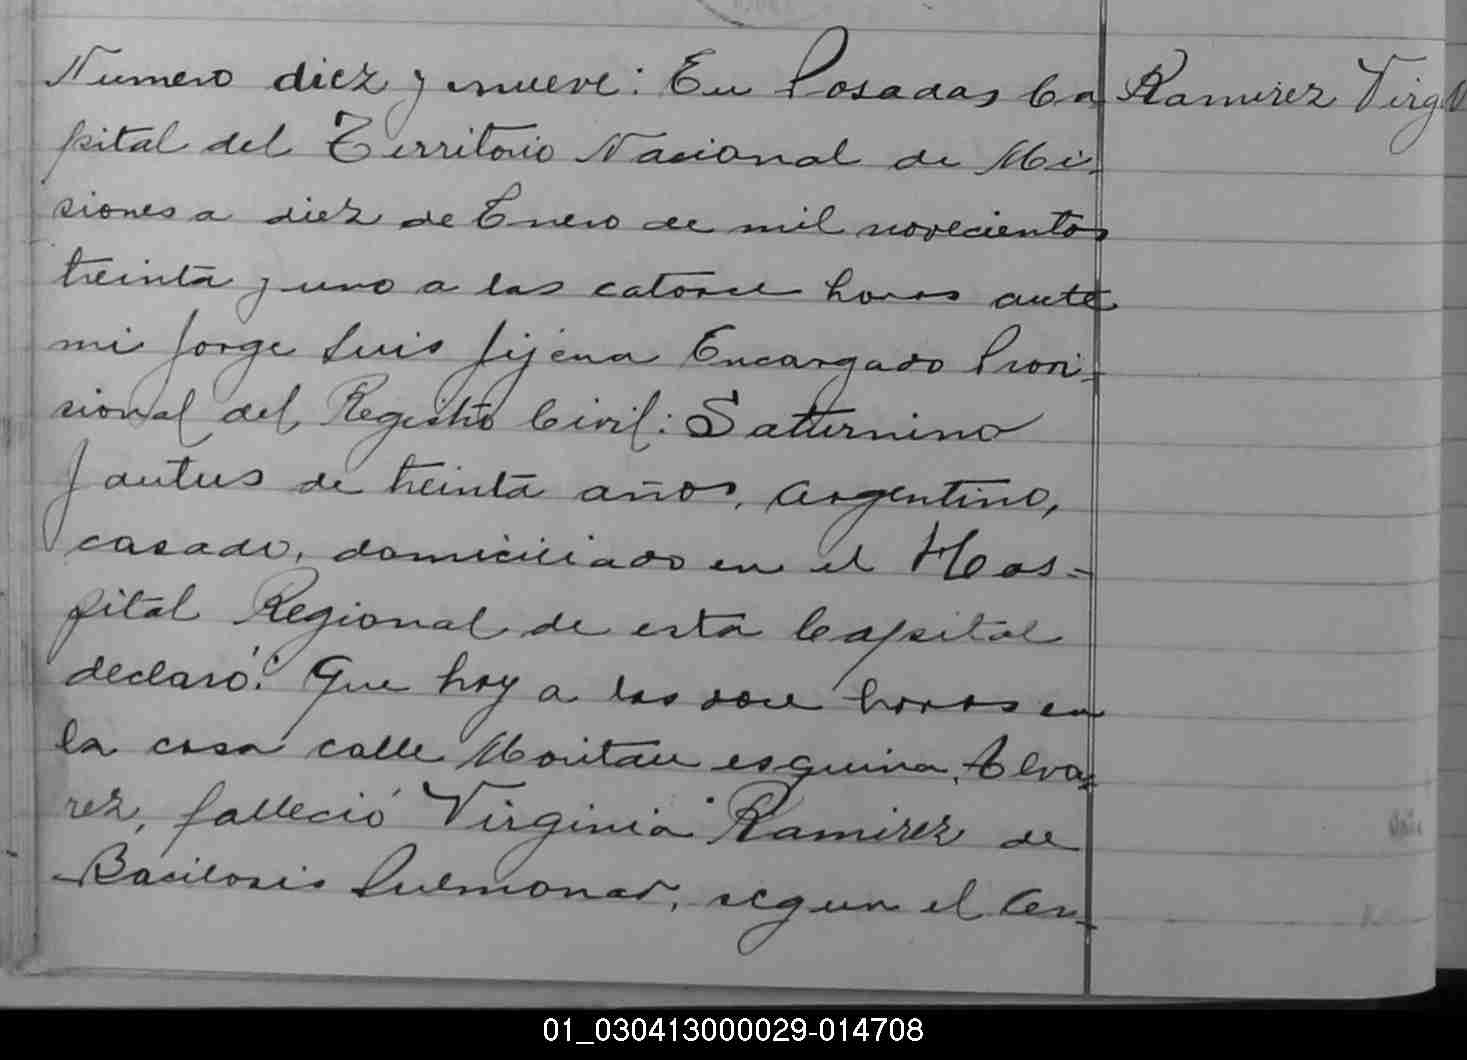 Numero diez y nueve: En Posadas Ca
pital del Territorio Nacional de Mi-
siones a diez de Enero de mil novecientos
treinta y uno a las catorce horas ante
mi Jorge Luis Jijena Encargado Provi-
sional del Registro Civil: Satturnino
de treinta años, argentino,
casado, domiciliado en el Hos-
pital Regional de esta Capital
declaró: Que hoy a las doce horas en
la casa calle esquina, Alva-
rez, falleció Virginia Ramirez de
Bacilosis Pulmonar, segun el Cer-
Ramirez Virg
01_030413000029-014708